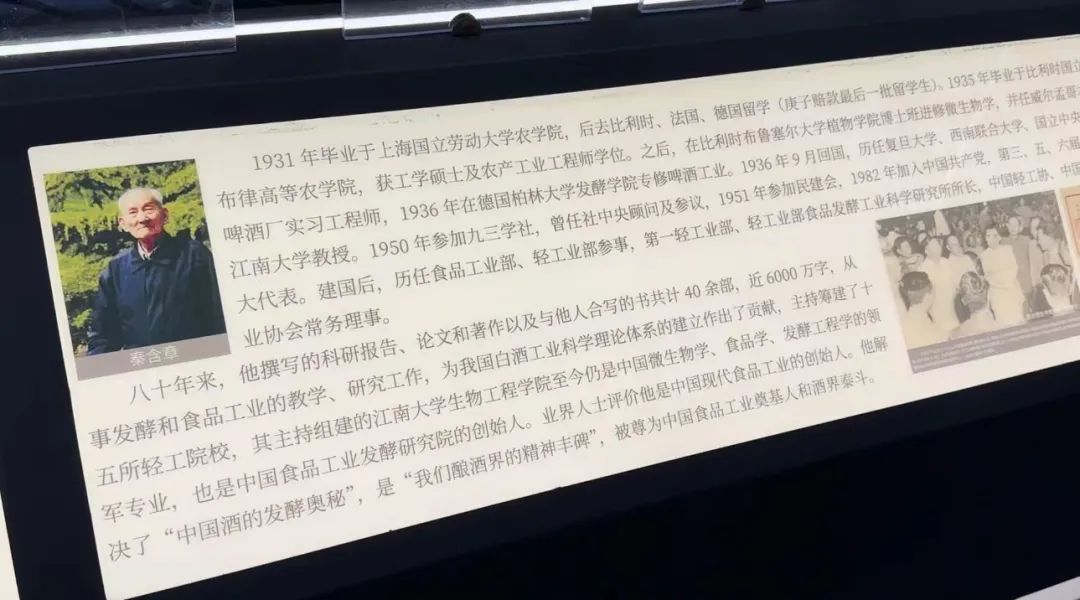 1931 年毕业于上海国立劳动大学农学院，后去比利时、法国、德国留学（庚子赔款最后一批留学生）。1935 年毕业于比利时国立
布律高等农学院，获工学硕士及农产工业工程师学位。之后，在比利时布鲁塞尔大学植物学院博士班进修微生物学，并任威尔孟哥
啤酒厂实习工程师，1936 年在德国柏林大学发酵学院专修啤酒工业。1936 年 9 月回国，历任复旦大学、西南联合大学、国立中央
江南大学教授。1950 年参加九三学社，曾任社中央顾问及参议，1951 年参加民建会，1982 年加入中国共产党，第三、五、六届
大代表。建国后，历任食品工业部、轻工业部参事，第一轻工业部、轻工业部食品发酵工业科学研究所所长，中国轻工协、中国
业协会常务理事。
八十年来，他撰写的科研报告、论文和著作以及与他人合写的书共计 40 余部，近 6000 万字，从
事发酵和食品工业的教学、研究工作，为我国白酒工业科学理论体系的建立作出了贡献，主持筹建了十
五所轻工院校，其主持组建的江南大学生物工程学院至今仍是中国微生物学、食品学、发酵工程学的领
军专业，也是中国食品工业发酵研究院的创始人。业界人士评价他是中国现代食品工业的创始人。他解
决了“中国酒的发酵奥秘”，是“我们酿酒界的精神丰碑”，被尊为中国食品工业奠基人和酒界泰斗。
秦含章